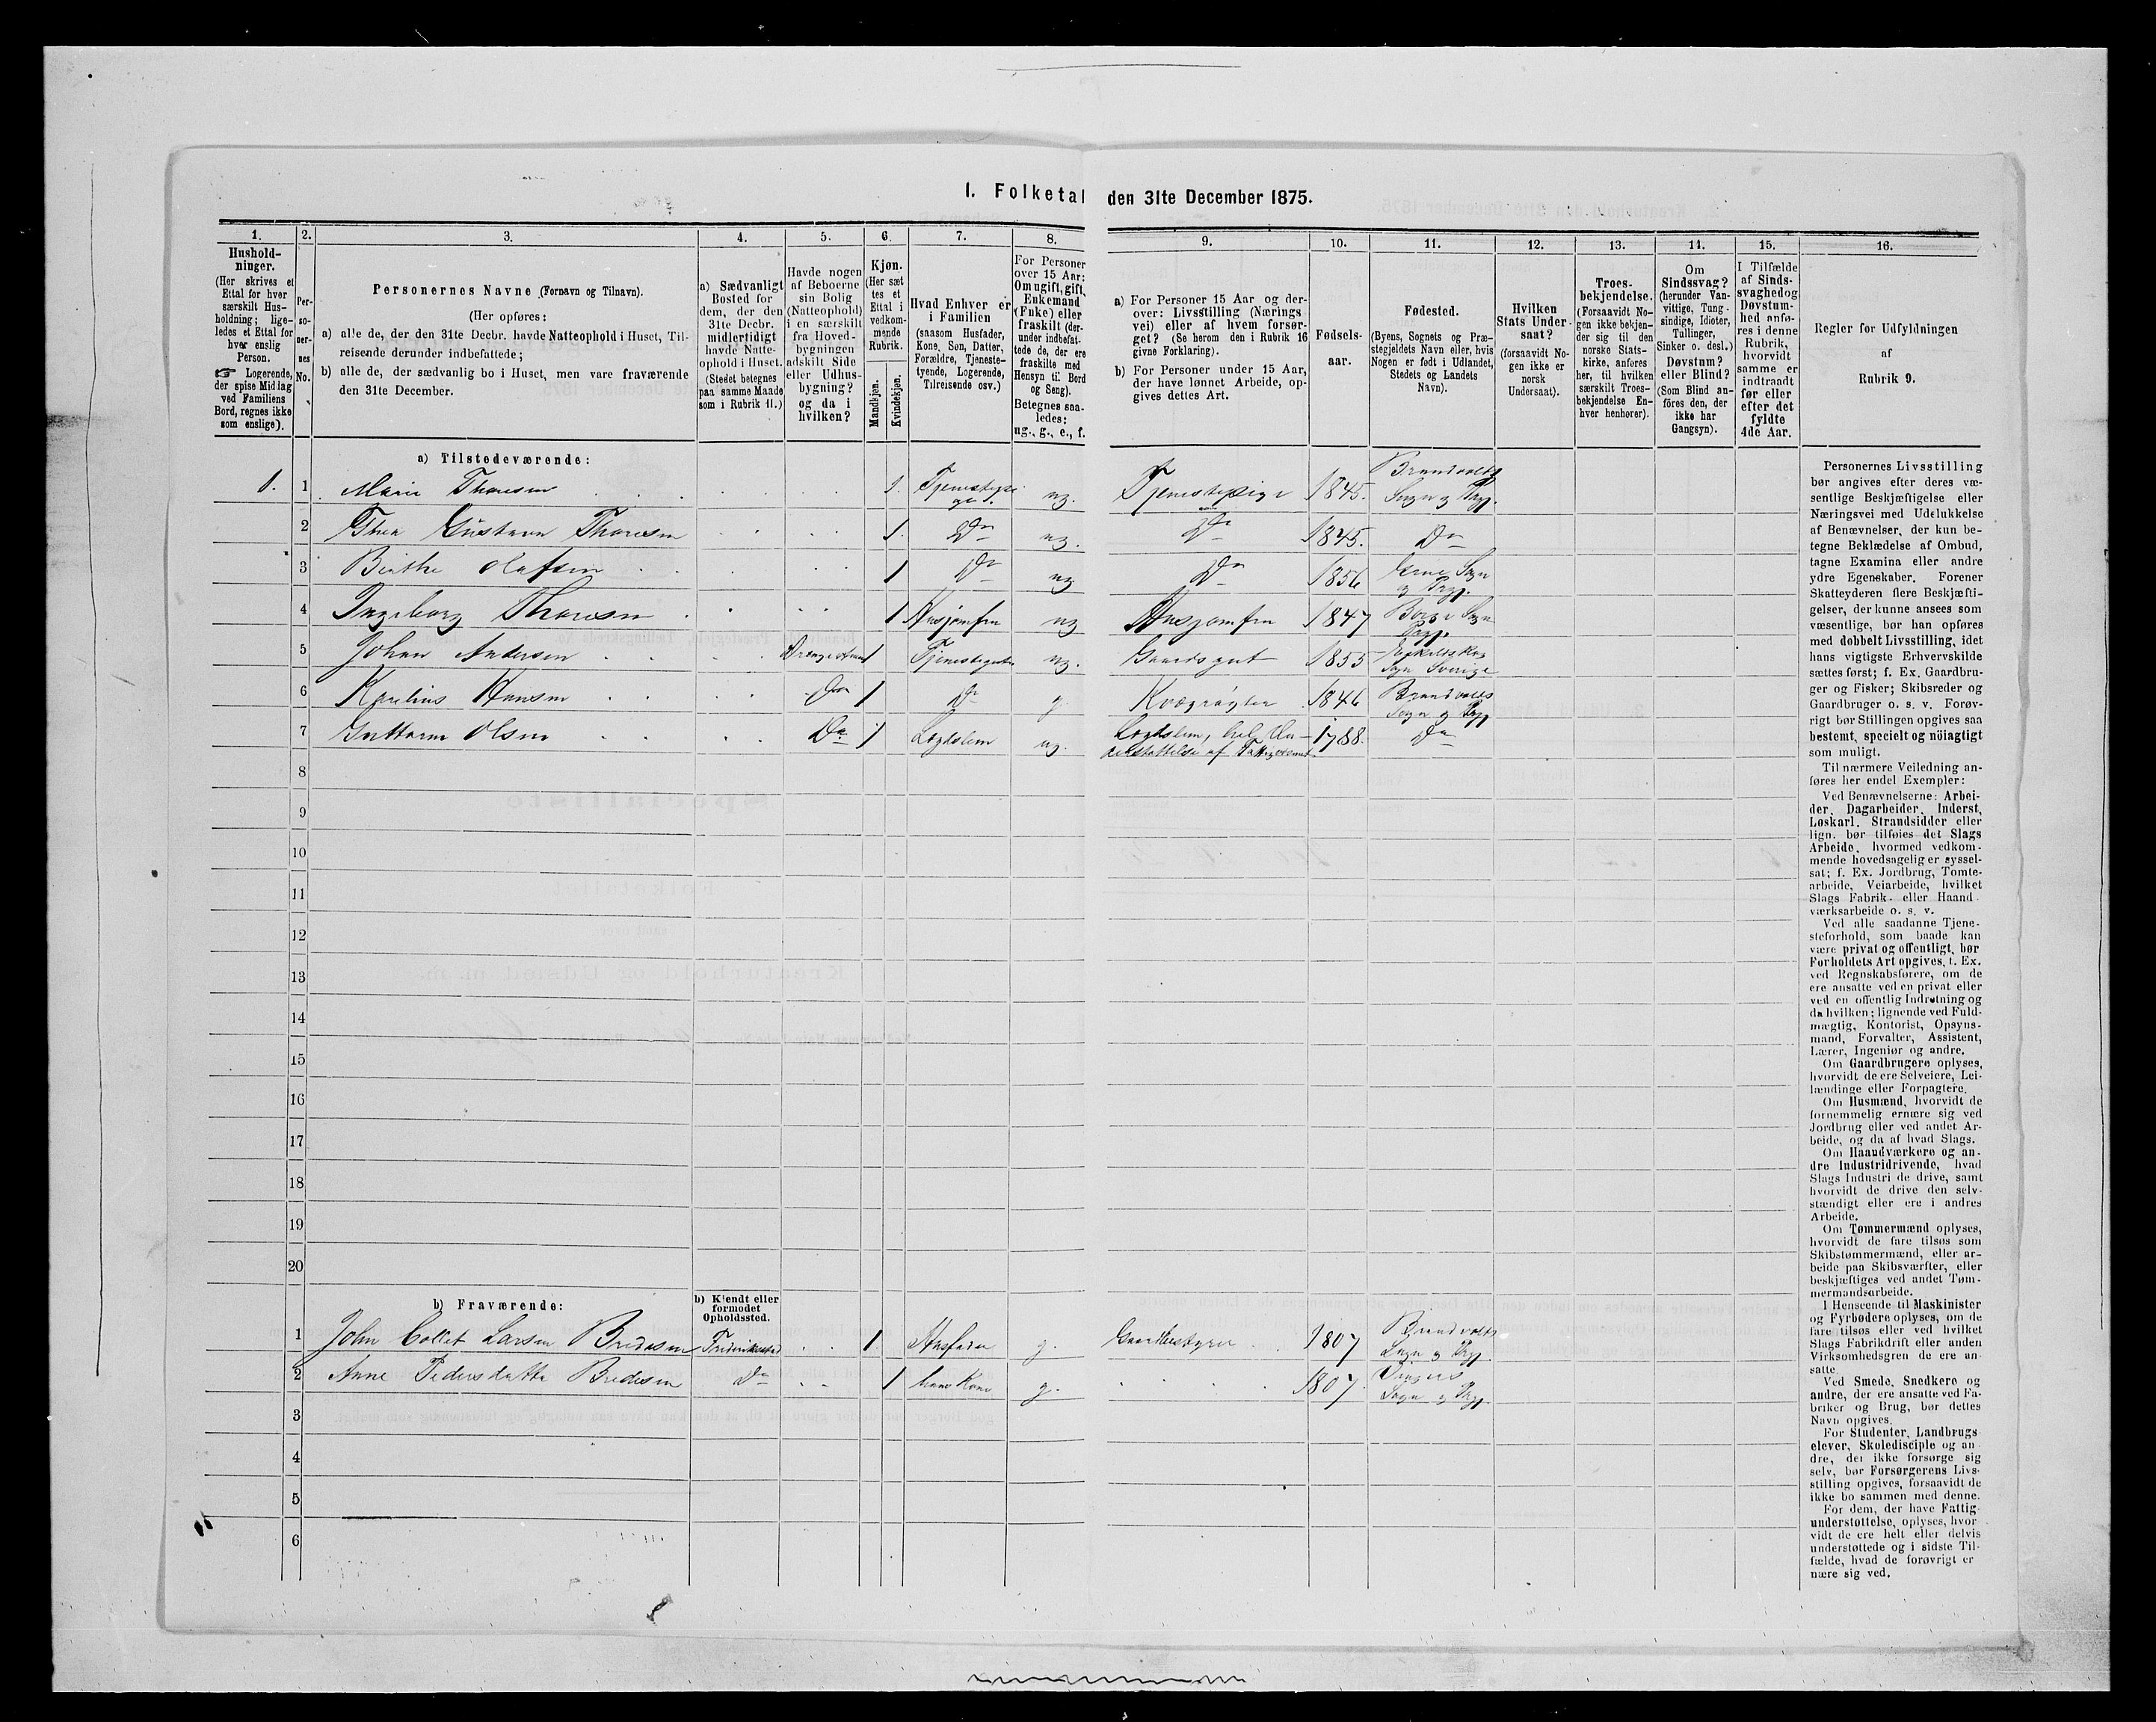 I. Folketal den 31te December 1875.
1.
2.
3.
4.
5.
6.
7.
8.
9.
10.
11.
12.
13.
14.
15.
16.
Hushold-
ninger.
(Her skrives et
Ettal for hver
særskilt Hus-
holdning; lige-
ledes et Ettal for
hver enslig
Person.
☞ Logerende,
der spise Middag
ved Familiens
Bord, regnes ikke
som enslige).
Per-
so-
ner-
nes
No.
Personernes Navne (Fornavn og Tilnavn).
(Her opføres:
a) alle de, der den 31te Decbr. havde Natteophold i Huset, Til-
reisende derunder indbefattede;
b) alle de, der sædvanlig bo i Huset, men vare fraværende
den 31te December.
a) Sædvanligt
Bosted for
dem, der den
31te Decbr.
midlertidigt
havde Natte-
ophold i Huset.
(Stedet betegnes
paa samme Maade
som i Rubrik 11.)
Havde nogen
af Beboerne
sin Bolig
(Natteophold)
i en særskilt
fra Hoved-
bygningen
adskilt Side
eller Udhus-
bygning?
og da i
hvilken?
Kjøn.
(Her sæt
tes et
Ettal i
vedkom-
mende
Rubrik.
Mandkjøn.
Kvindekjøn.
Hvad Enhver er
i Familien
(saasom Husfader,
Kone, Søn, Datter,
Forældre, Tjeneste-
tyende, Logerende,
Tilreisende osv.)
For Personer
over 15 Aar:
Om ugift, gift,
Enkemand
(Enke) eller
fraskilt (der-
under indbefat-
tede de, der ere
fraskilte med
Hensyn til Bord
og Seng).
Betegnes saa-
ledes:
ug., g., e., f.
a) For Personer 15 Aar og der-
over: Livsstilling (Nærings
vei) eller af hvem forsør-
get? (Se herom den i Rubrik 16
givne Forklaring).
b) For Personer under 15 Aar,
der have lønnet Arbeide, op-
gives dettes Art.
Fødsels-
aar.
Fødested.
(Byens, Sognets og Præ-
stegjeldets Navn eller, hvis
Nogen er født i Udlandet,
Stedets og Landets
Navn).
Hvilken
Stats Under-
saat?
(forsaavidt No-
gen ikke er
norsk
Undersaat).
Troes-
bekjendelse.
(Forsaavidt No-
gen ikke bekjen-
der sig til den
norske Stats-
kirke, anføres
her, til hvilken
særskilt Troes-
bekjendelse En-
hver henhører).
Om
Sindssvag?
(herunder Van-
vittige, Tung-
sindige, Idioter,
Tullinger,
Sinker o. desl.)
Døvstum?
eller Blind?
(Som Blind an-
føres den, der
ikke har
Gangsyn).
I Tilfælde
af Sinds-
svaghed og
Døvstum-
hed anfø-
res i denne
Rubrik,
hvorvidt
samme er
indtraadt
før eller
efter det
fyldte
4de Aar.
Regler for Udfyldningen
af
Rubrik 9.
a) Tilstedeværende:
1. 1 Marie Thoresen 1. ug. Tjenestepige 1845. Brandvolds Sogn og Prgj.
2 Thea Gustava Thoresen 1. Do ug. Do 1845. Do
3 Birthe Olafsen 1 Do ug Do 1856 Sogn og Prgj.
4 Ingeborg Thoresen 1 Husjomfru ug Husjomfru 1847 Borge Sogn Prgj.
5 Johan Andersen 1 Tjenestegut ug. Gaardsgut 1855 Sogn Sverige
6 Karelius Hansen Do 1 Do g. Kvægrøgter 1846 Brandvolds Sogn og Prgj
7 Guttorm Olsen Do 1 Lægdslem ug. Lægdslem, 1788. Do
8
9
10
11
12
13
14
15
16
17
18
19
20
b) Fraværende:
b) Kjendt eller
formodet
Opholdssted.
1 John Collet Larsen Bredesen Frederiksstad 1. Husfader g. Gaardbestyrer 1807 Brandvolds Sogn og Prgj.
2 Anne Pedersdatter Bredesen Do 1 hans Kone g. 1807. Vingers Sogn og Prgj.
3
4
5
6
Personernes Livsstilling
bør angives efter deres væ-
sentlige Beskjæftigelse eller
Næringsvei med Udelukkelse
af Benævnelser, der kun be-
tegne Beklædelse af Ombud,
tagne Examina eller andre
ydre Egenskaber. Forener
Skatteyderen flere Beskjæfti-
gelser, der kunne ansees som
væsentlige, bør han opføres
med dobbelt Livsstilling, idet
hans vigtigste Erhvervskilde
sættes først; f. Ex. Gaardbru-
ger og Fisker; Skibsreder og
Gaardbruger o. s. v. Forøv-
rigt bør Stillingen opgives saa
bestemt, specielt og nöiagtigt
som muligt.
Til nærmere Veiledning an-
føres her endel Exempler:
Ved Benævnelserne: Arbei-
der, Dagarbeider, Inderst,
Løskarl, Strandsidder eller
lign. bør tilføies det Slags
Arbeide, hvormed vedkom-
mende hovedsagelig er syssel-
sat; f. Ex. Jordbrug, Tomte-
arbeide, Veiarbeide, hvilket
Slags Fabrik- eller Haand-
værksarbeide o. s. v.
Ved alle saadanne Tjene-
steforhold, som baade kan
være privat og offentligt, bør
Forholdets Art opgives, f. Ex.
ved Regnskabsførere, om de
ere ansatte ved en privat eller
ved en offentlig Indretning og
da hvilken; lignende ved Fuld-
mægtig, Kontorist, Opsyns-
mand, Forvalter, Assistent,
Lærer, Ingeniør og andre.
Om Gaardbrugere oplyses,
hvorvidt de ere Selveiere, Lei-
lændinge eller Forpagtere.
Om Husmænd, hvorvidt de
fornemmelig ernære sig ved
Jordbrug eller ved andet Ar-
beide, og da af hvad Slags.
Om Haandværkere og an-
dre Industridrivende, hvad
Slags Industri de drive, samt
hvorvidt de drive den selv-
stændigt eller ere i andres
Arbeide.
Om Tømmermænd oplyses,
hvorvidt de fare tilsøs som
Skibstømmermænd, eller ar-
beide paa Skibsværfter, eller
beskjæftiges ved andet Tøm-
mermandsarbeide.
I Henseende til Maskinister
og Fyrbødere oplyses, om de
fare tilsøs eller ved hvilket
Slags Fabrikdrift eller anden
Virksomhedsgren de ere an-
satte.
Ved Smede, Snedkere og
andre, der ere ansatte ved Fa-
briker og Brug, bør dettes
Navn opgives.
For Studenter, Landbrugs
elever, Skoledisciple og an-
dre, der ikke forsørge sig
selv, bør Forsørgerens Livs-
stilling opgives, forsaavidt de
ikke bo sammen med denne.
For dem, der have Fattig-
understøttelse, oplyses, hvor-
vidt de ere helt eller delvis
understøttede og i sidste Til-
fælde, hvad de forøvrigt er
nære sig ved.